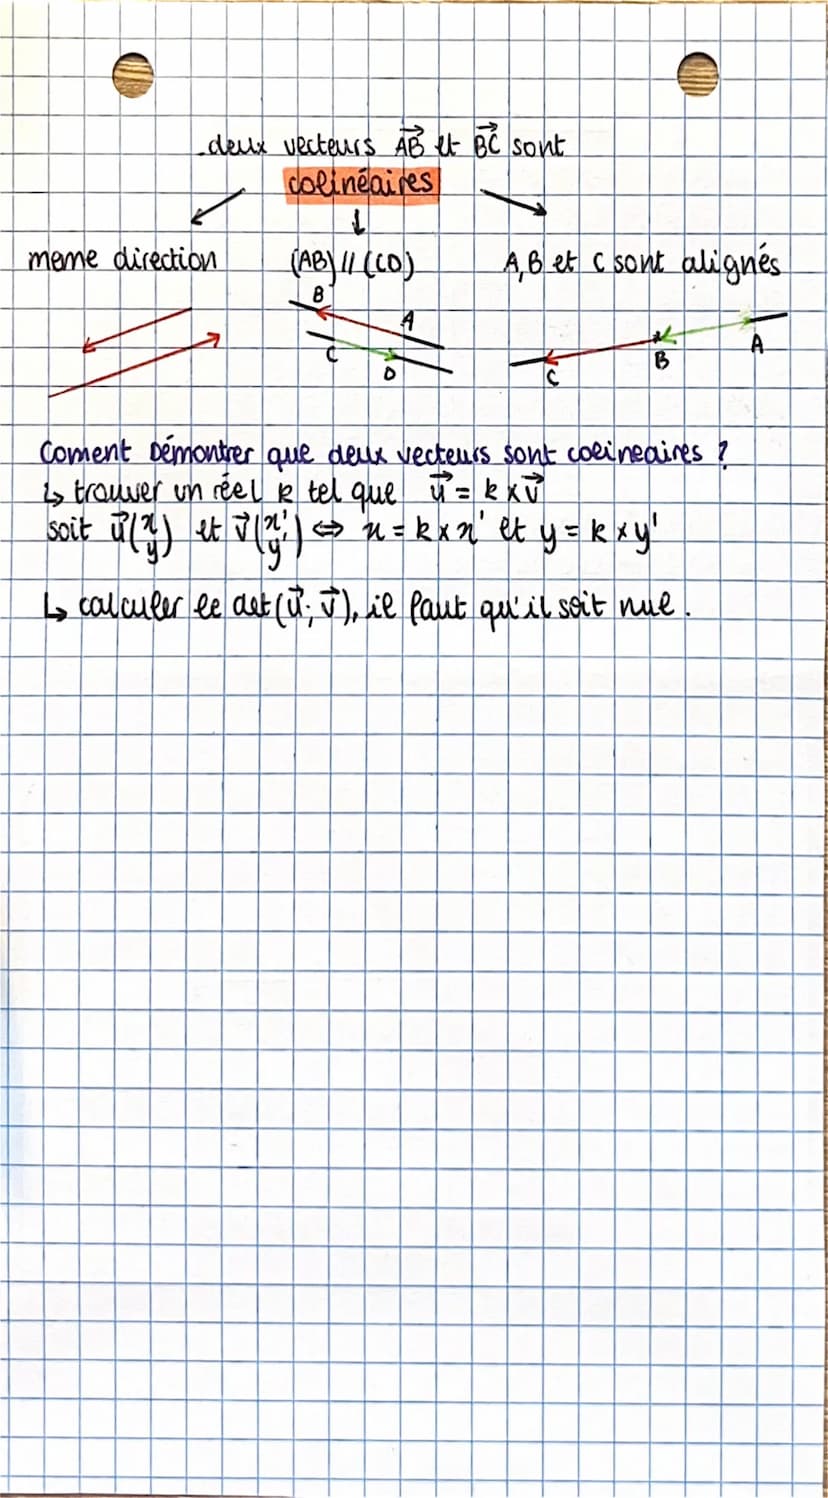 deux vecteurs A⃗B⃗ et B⃗C⃗ sont
colinéaires
meme direction
(AB) // (CD)
A, B et C sont alignés
B
A
C
D
C
B
A
Coment Démontrer que deux vecteurs sont colineaires ?
↳ trouver un réel k tel que u⃗ = k × v⃗
soit u⃗(x y) et v⃗(x' y') ⇔ x = k × x' et y = k × y'
↳ calculer le det(u⃗; v⃗), il faut qu'il soit nul.